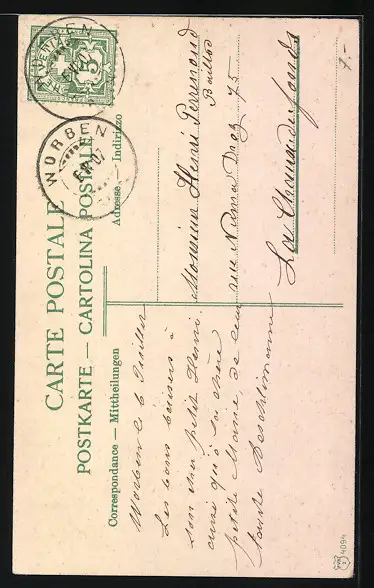 CARTE POSTALE
POSTKARTE — CARTOLINA POSTALE
Correspondance — Mittheilungen
Adresse — Indirizzo
WORBEN
5
Worben le 6 Juillet
Les bons baisers à
son cher petit Henri
ainsi qu'à sa chère
petite Mamie, de leur
tante Aeschlimann
Monsieur Henri Perrenoud
Baillod
rue Numa Droz 75
La Chaux-de-fonds
7.-
4094